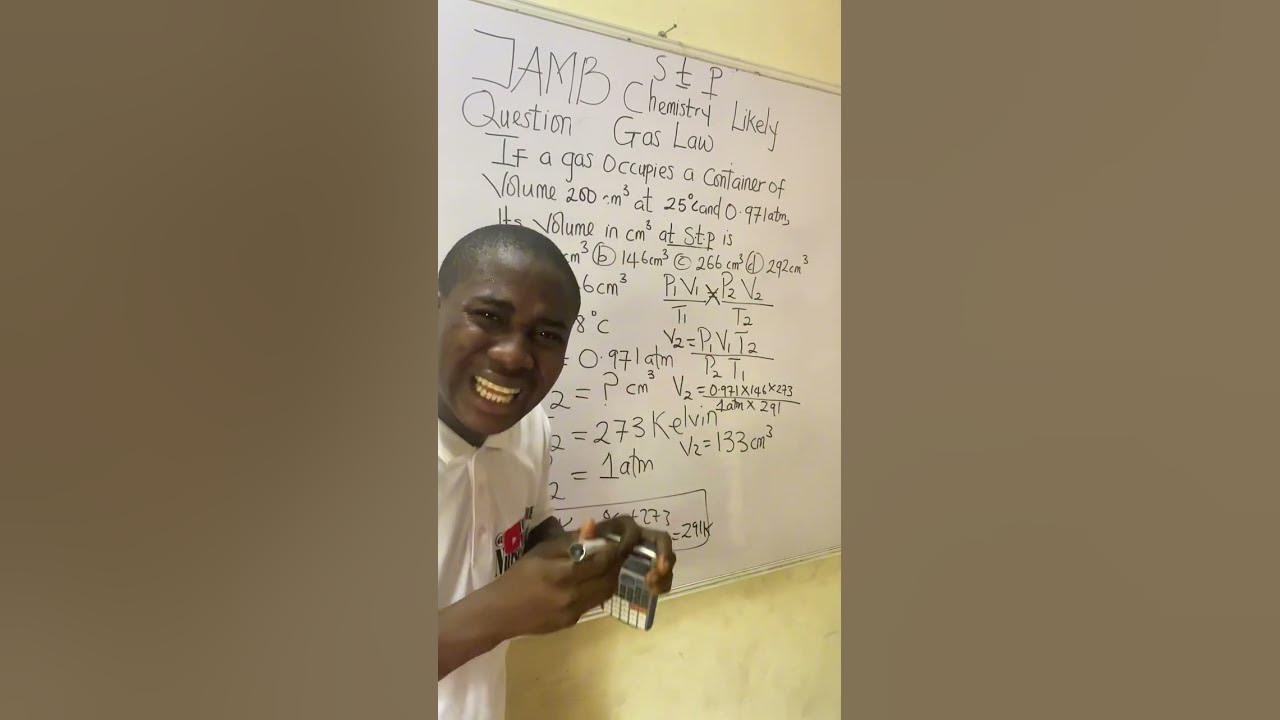 JAMB S.t.P
Chemistry Likely
Question Gas Law
If a gas occupies a container of
Volume 200 cm³ at 25°c and 0.971atm,
Its Volume in cm³ at S.t.p is
cm³ (b) 146cm³ (c) 266.cm³ (d) 292cm³
6cm³
8°C
= 0.971atm
2 = ? cm³
2 = 273 Kelvin
2 = 1atm
+273
=291K
P₁V₁ P₂V₂
T₁ T₂
V₂ = P₁V₁T₂
P₂T₁
V₂ = 0.971×146×273
1atm × 291
V₂ = 133cm³